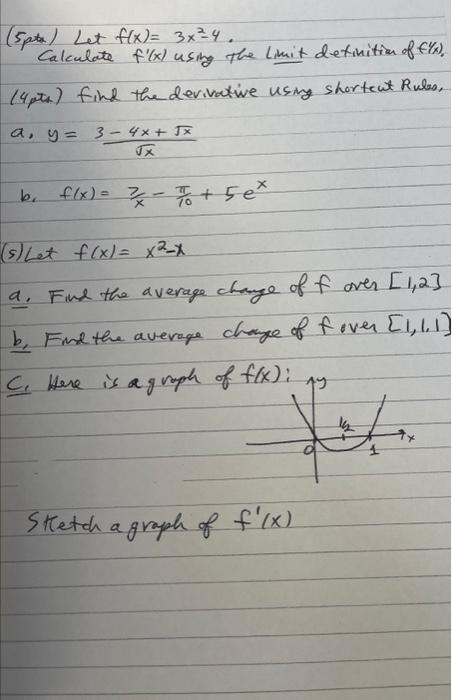 (5pts) Let f(x) = 3x²-4.
Calculate f'(x) using the limit definition of f'(x).
(4pts) find the derivative using shortcut Rules,
a. y = (3 - 4x + √x)/√x
b. f(x) = 7/x - π/10 + 5e^x
(5) Let f(x) = x²-x
a. Find the average change of f over [1,2]
b. Find the average change of f over [1,1.1]
C. Here is a graph of f(x):
y
1/2
x
0
1
Sketch a graph of f'(x)